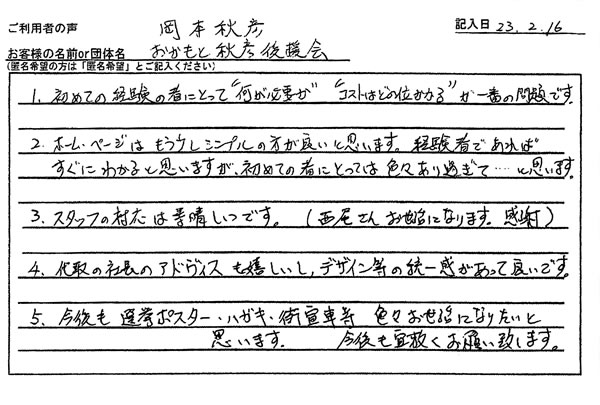 ご利用者の声
岡本秋彦
記入日 23.2.16
お客様の名前or団体名 おかもと秋彦後援会
(匿名希望の方は「匿名希望」とご記入ください)
1. 初めての経験の者にとって"何が必要か" "コストはどの位かかる"が一番の問題です。
2. ホーム・ページはもう少しシンプルの方が良いと思います。経験者であれば
すぐにわかると思いますが、初めての者にとっては色々あり過ぎて……と思います。
3. スタッフの対応は素晴しいつです。(西尾さんお世話になります。感謝)
4. 代取の社長のアドヴィスも嬉しいし、デザイン等の統一感があって良いです。
5. 今後も選挙ポスター・ハガキ・街宣車等 色々お世話になりたいと
思います。 今後も宜敷くお願い致します。